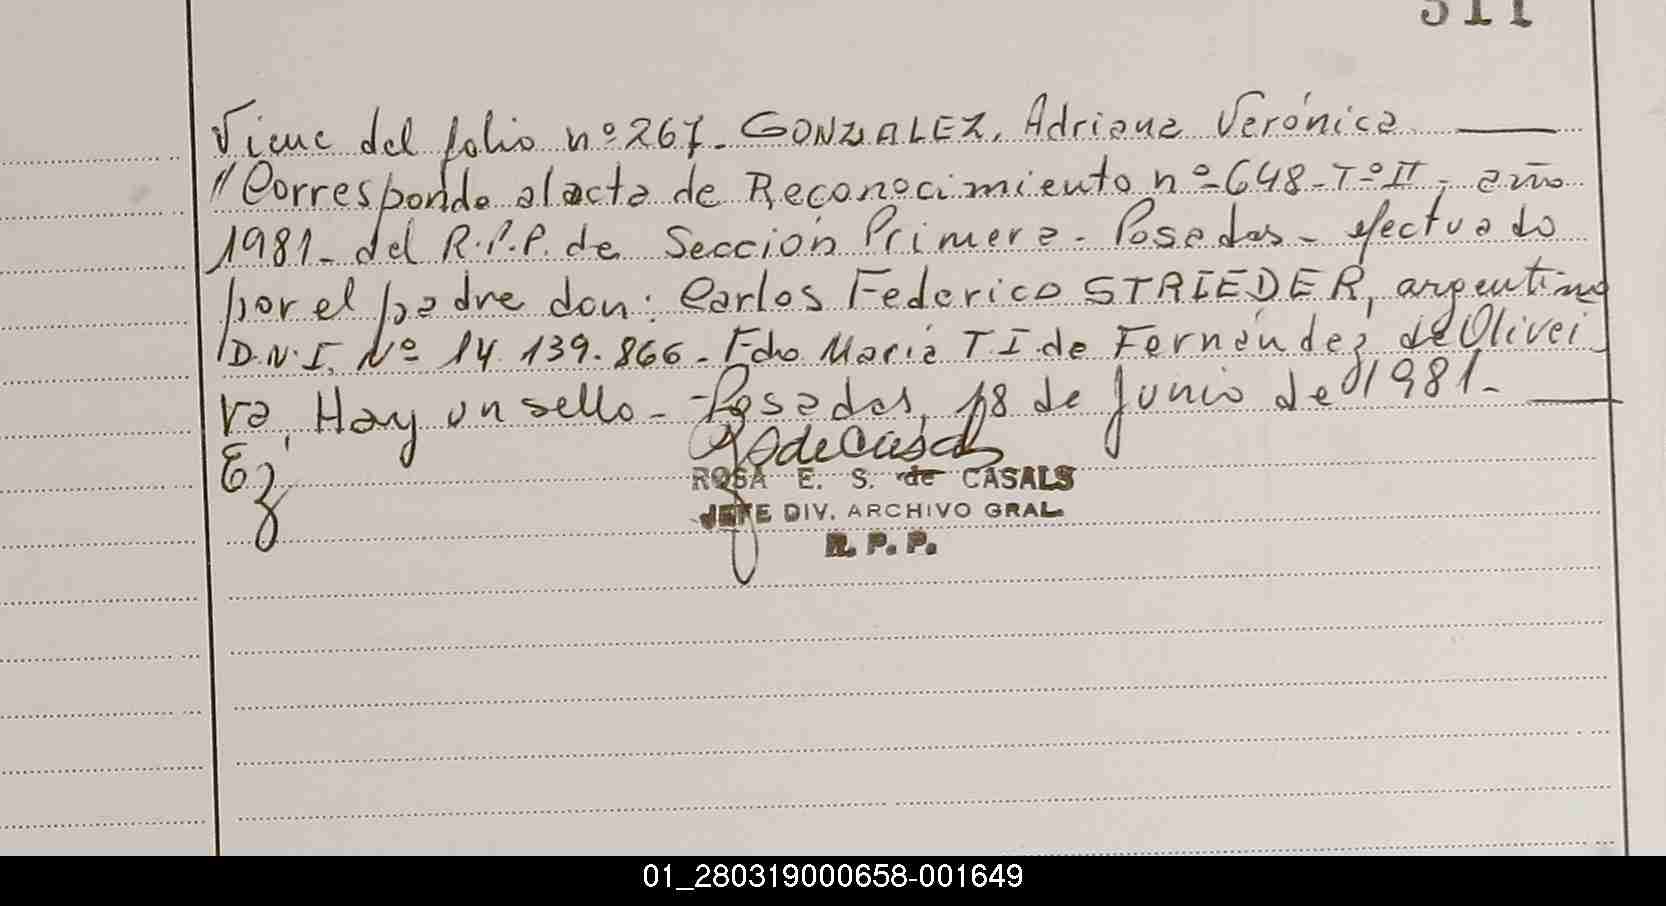 311
Viene del folio nº 267. GONZALEZ, Adriana Verónica
"Corresponde al acta de Reconocimiento nº 648-Tº II, año
1981- del R.P.P. de Sección Primera - Posadas - efectuado
por el padre don: Carlos Federico STRIEDER, argentino
D.N.I. Nº 14.139.866 - Fdo María T.I. de Fernández de Olivei
ra, Hay un sello - Posadas, 18 de Junio de 1981-
Ez
ROSA E. S. de CASALS
JEFE DIV. ARCHIVO GRAL.
R. P. P.
01_280319000658-001649